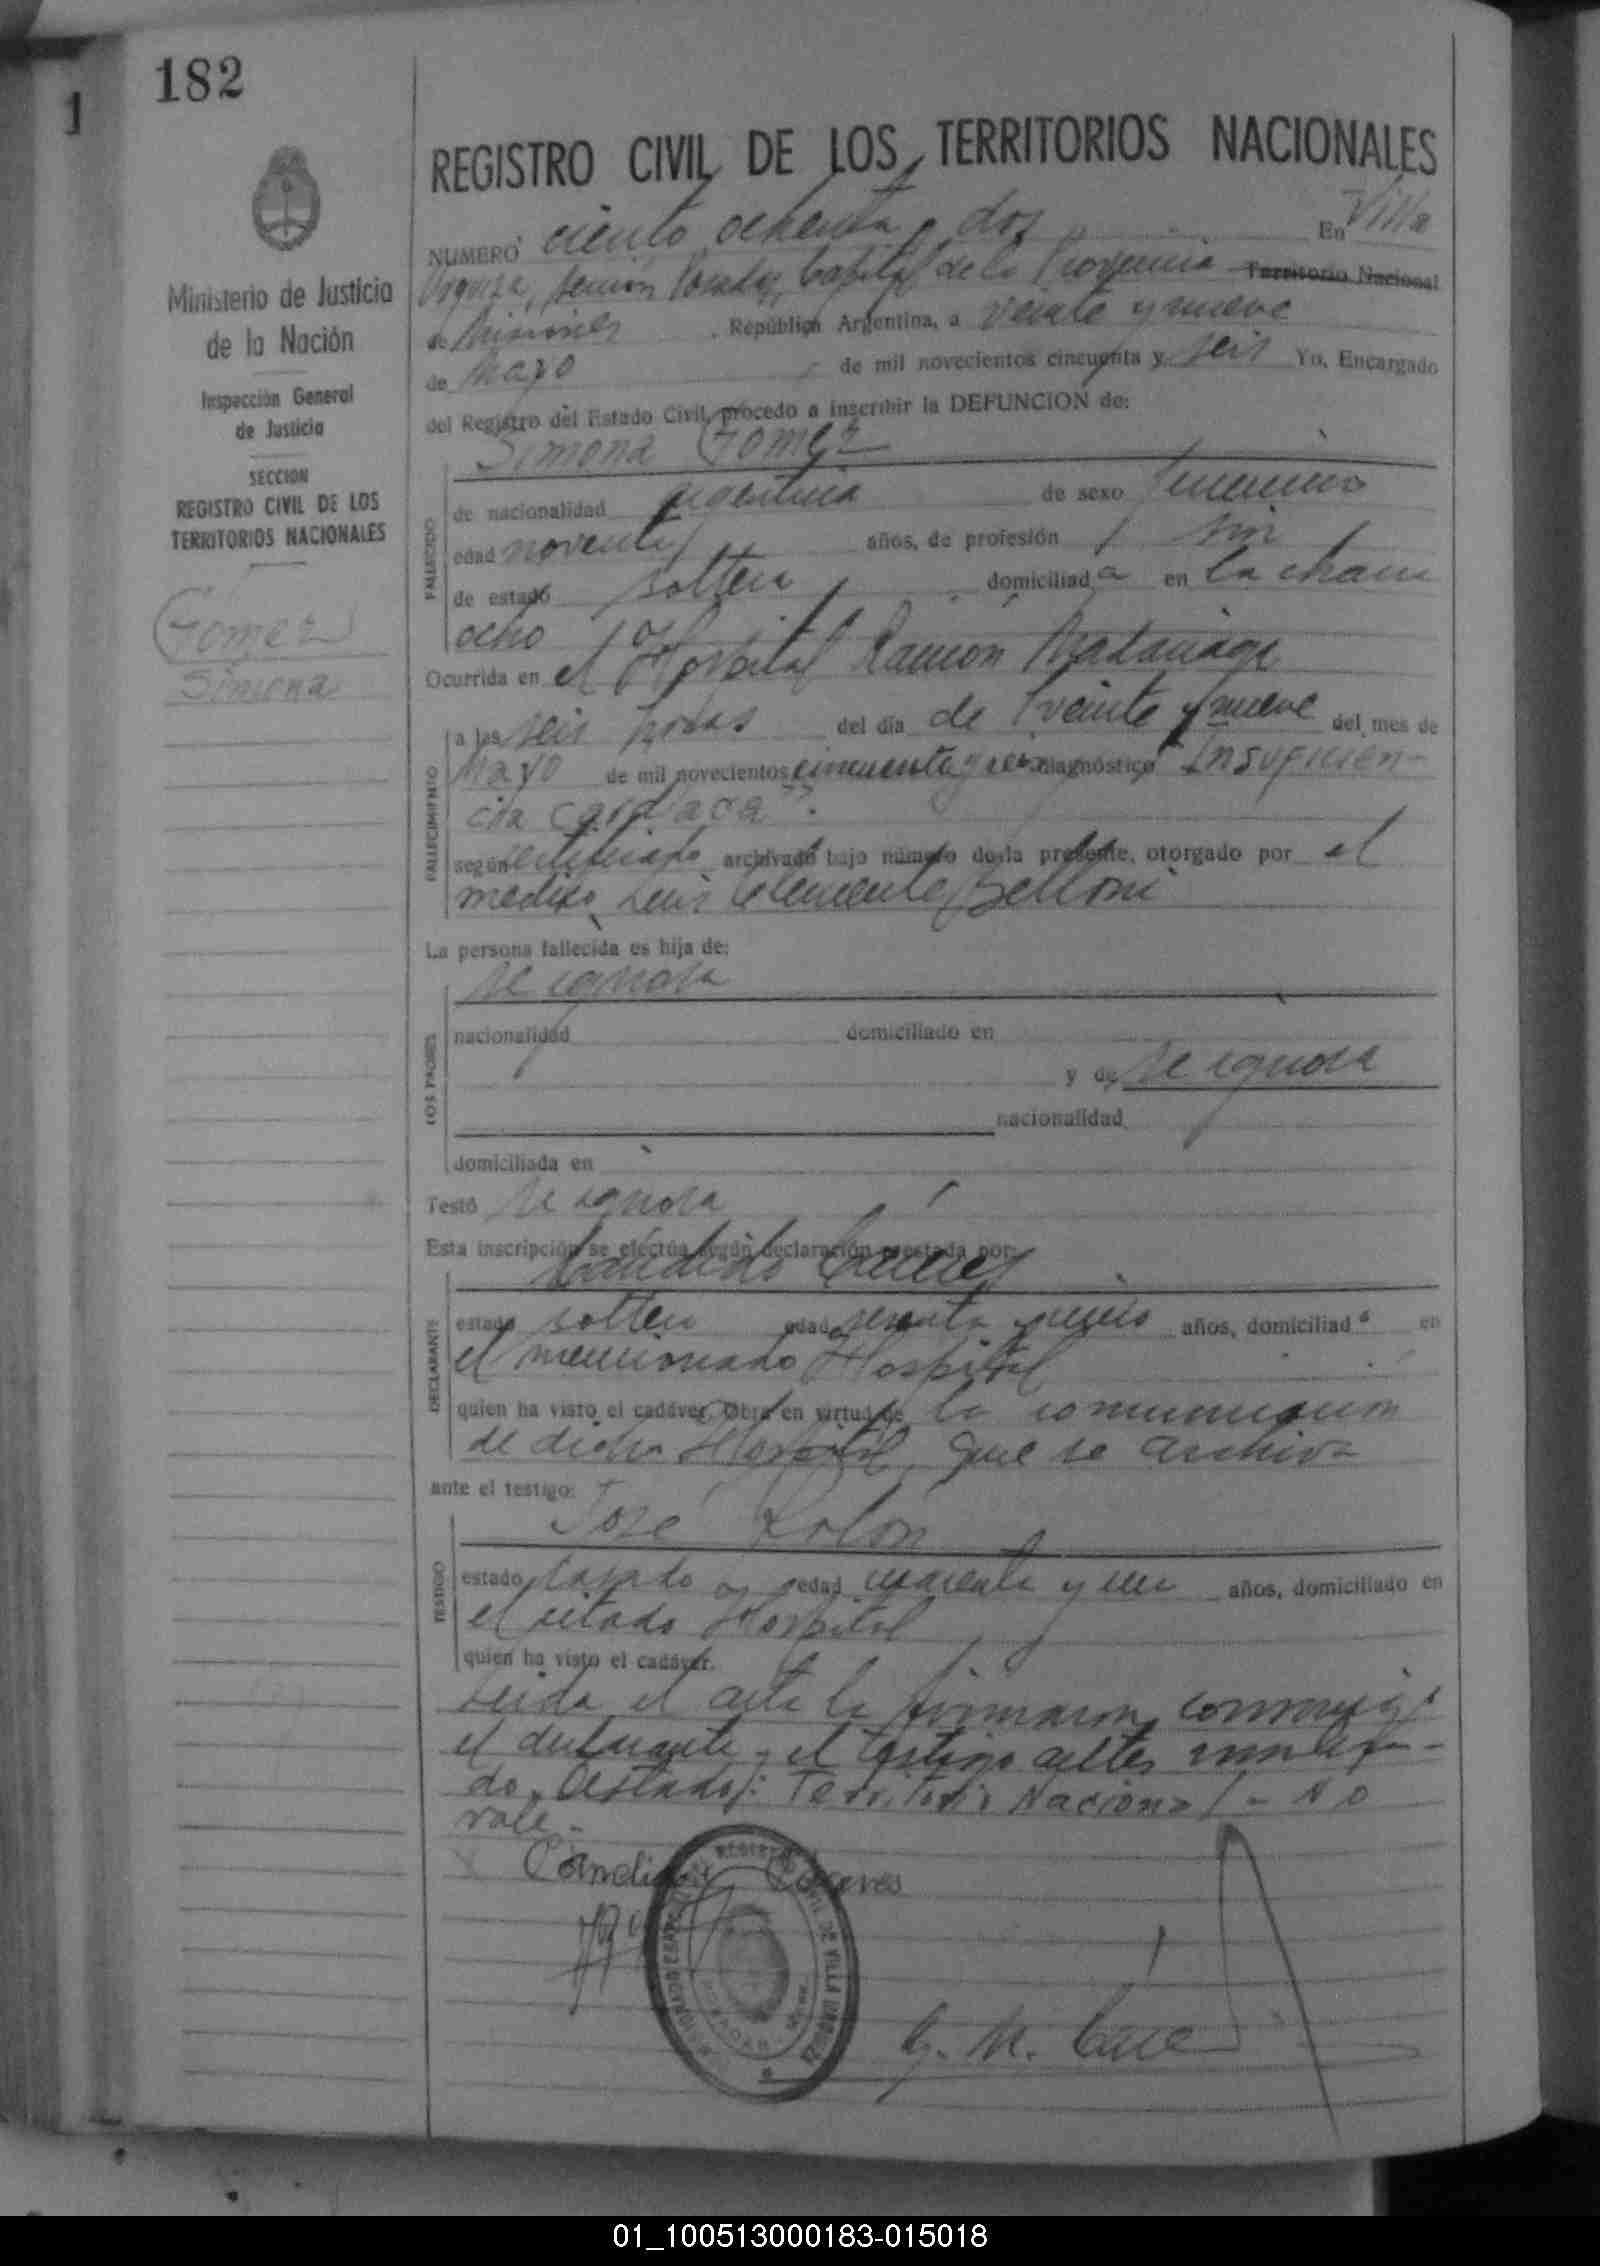 182
1
Ministerio de Justicia
de la Nación
Inspección General
de Justicia
SECCION
REGISTRO CIVIL DE LOS
TERRITORIOS NACIONALES
Gomez
Simona
REGISTRO CIVIL DE LOS TERRITORIOS NACIONALES
NUMERO ciento ochenta y dos En Villa
Urquiza, Capital de la Provincia Territorio Nacional
de Misiones República Argentina, a veinte y nueve
de Mayo de mil novecientos cincuenta y seis Yo, Encargado
del Registro del Estado Civil, procedo a inscribir la DEFUNCION de:
Simona Gomez
FALLECIDO
de nacionalidad argentina de sexo femenino
edad noventa años, de profesión sin
de estado soltera domiciliada en la chacra
ocho
Ocurrida en el Hospital Ramón Madariaga
FALLECIMIENTO
a las seis horas del día de veinte y nueve del mes de
Mayo de mil novecientos cincuenta y seis diagnóstico Insuficien-
cia cardiaca
según certificado archivado bajo número de la presente, otorgado por el
medico Luis Clemente Belloni
La persona fallecida es hija de:
se ignora
LOS PADRES
nacionalidad domiciliado en
y de se ignora
nacionalidad
domiciliada en
Testó se ignora
Esta inscripción se efectúa según declaración prestada por:
Candido Caceres
DECLARANTE
estado soltero edad años, domiciliado en
el mencionado Hospital
quien ha visto el cadáver. Obra en virtud de la comunicacion
de dicho Hospital, que se archiva
ante el testigo:
José Rolón
TESTIGO
estado casado edad cuarenta y un años, domiciliado en
el citado Hospital
quien ha visto el cadáver.
Leida el acta la firmaron conmigo
el declarante y el testigo antes
do. Testado: Territorio Nacional - No
vale.
Candido Caceres
01_100513000183-015018